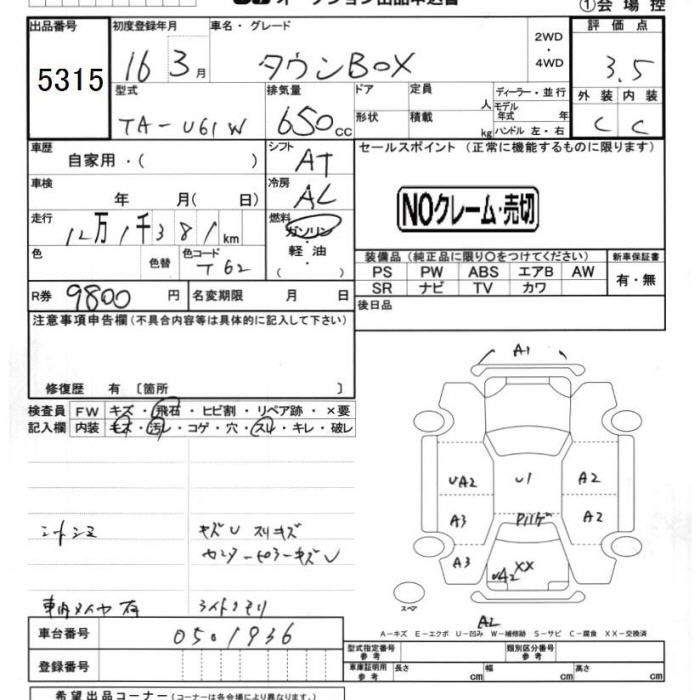 ①会 場 控
出品番号 初度登録年月 車名・グレード 2WD ・ 4WD 評 価 点
5315 16 3月 タウンBOX 3.5
型式 排気量 ドア 定員 人 ディーラー・並行 外 装 内 装
TA-U61W 650cc 形状 積載 kg モデル年式 年 C C
ハンドル 左・右
車歴 シフト セールスポイント (正常に機能するものに限ります)
自家用・( ) AT
車検 冷房
年 月( 日) AC
NOクレーム・売切
走行 燃料
12万1千381km ガソリン
色 色替 色コード 軽 油
T62 ( )
装備品 (純正品に限り○をつけてください) 新車保証書
PS PW ABS エアB AW 有・無
SR ナビ TV カワ
R券 9800円 名変期限 月 日
後日品
注意事項申告欄(不具合内容等は具体的に記入して下さい)
修復歴 有 〔箇所 〕
検査員 FW キズ・飛石・ヒビ割・リペア跡・×要
記入欄 内装 キズ・汚レ・コゲ・穴・スレ・キレ・破レ
A1
UA2 U1 A2
A3 A2
A3 UA2 XX
スペア
A2
キズU スリキズ
A-キズ E-エクボ U-凹み W-補修跡 S-サビ C-腐食 XX-交換済
車台番号 0501936
型式指定番号 参考 類別区分番号 参考
登録番号
車庫証明用 参考 長さ cm 幅 cm 高さ cm
希望出品コーナー(コーナーは各会場により異なります。)